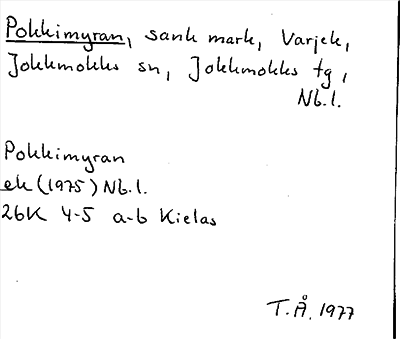 Pokkimyran, sank mark, Varjek,
Jokkmokks sn, Jokkmokks tg,
Nb.l.
Pokkimyran
ek (1975) Nb.l.
26K 4-5 a-b Kielas
T.Å. 1977